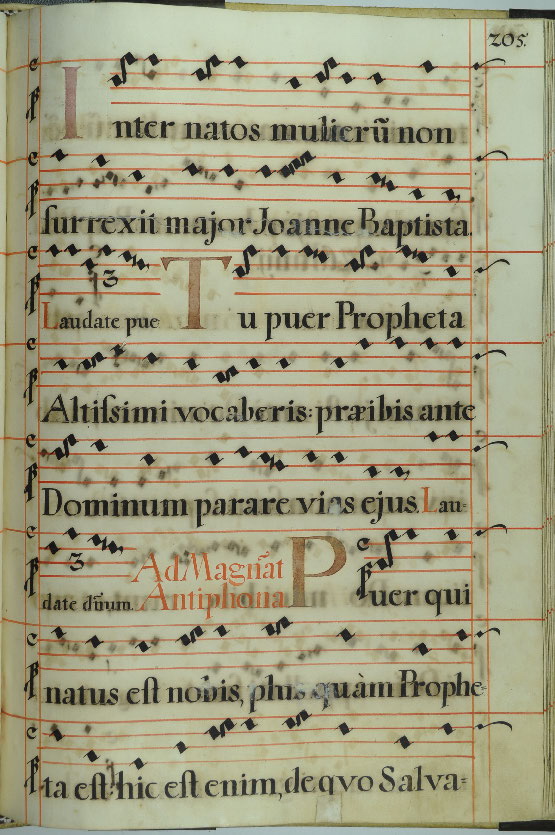 205.
Inter natos mulierũ non
surrexit major Joanne Baptista.
3
Laudate pue Tu puer Propheta
Altissimi vocaberis: præibis ante
Dominum parare vias ejus. Lau-
3
date dñum. Ad Magñat Antiphona Puer qui
natus est nobis, plus quàm Prophe-
ta est: hic est enim, de qvo Salva-